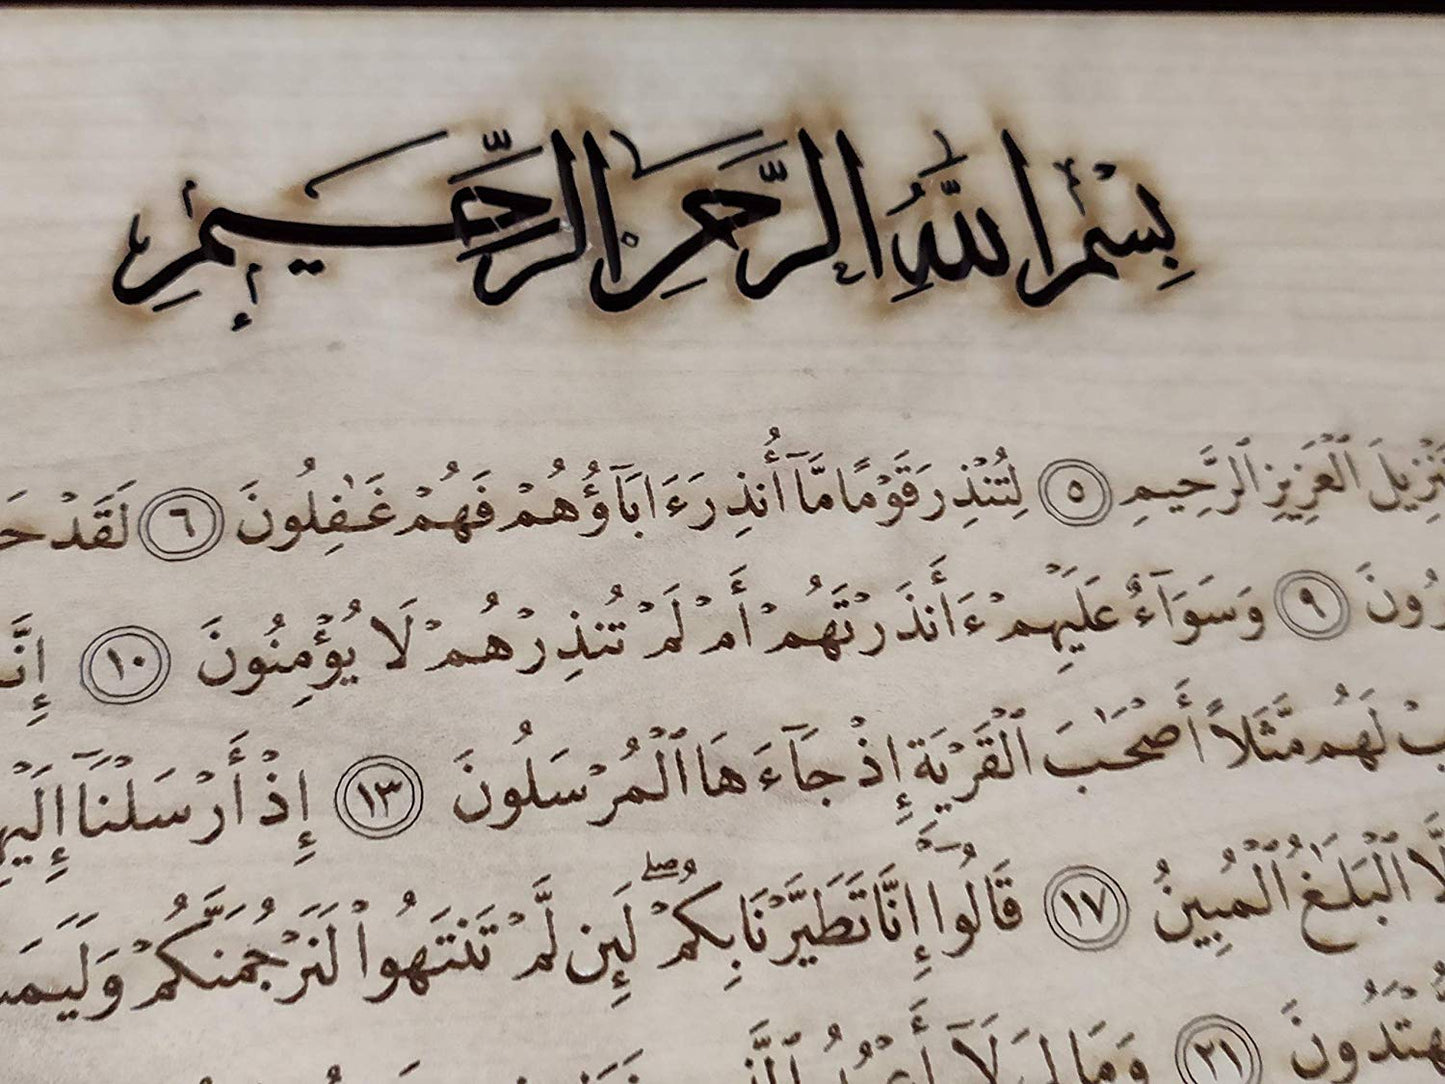 بِسْمِ اللَّهِ الرَّحْمَٰنِ الرَّحِيمِ
تَنْزِيلَ ٱلْعَزِيزِ ٱلرَّحِيمِ ٥ لِتُنْذِرَ قَوْمًا مَّآ أُنذِرَ ءَابَآؤُهُمْ فَهُمْ غَٰفِلُونَ ٦ لَقَدْ
وَسَوَآءٌ عَلَيْهِمْ ءَأَنذَرْتَهُمْ أَمْ لَمْ تُنذِرْهُمْ لَا يُؤْمِنُونَ ١٠ ٩
لَهُم مَّثَلًا أَصْحَٰبَ ٱلْقَرْيَةِ إِذْ جَآءَهَا ٱلْمُرْسَلُونَ ١٣ إِذْ أَرْسَلْنَآ
ٱلْبَلَٰغُ ٱلْمُبِينُ ١٧ قَالُوٓا۟ إِنَّا تَطَيَّرْنَا بِكُمْ ۖ لَئِن لَّمْ تَنتَهُوا۟ لَنَرْجُمَنَّكُمْ
٢١ وَمَا لِىَ لَآ